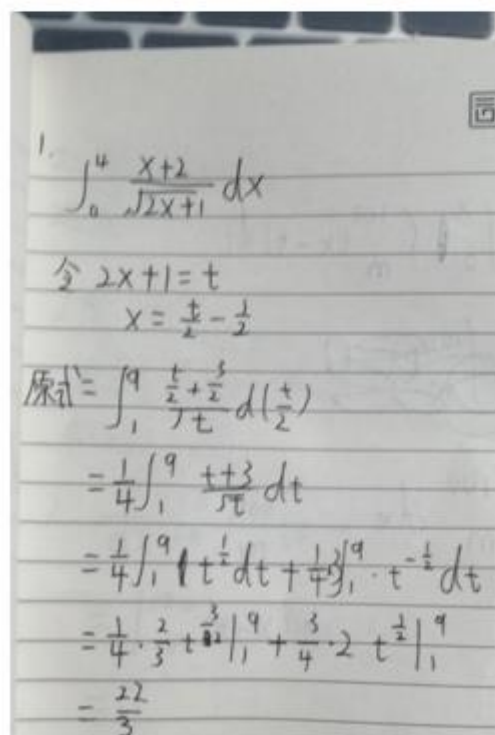 1.
∫₀⁴ (x+2)/√(2x+1) dx
令 2x+1=t
x = t/2 - 1/2
原式 = ∫₁⁹ (t/2 + 3/2)/√t d(t/2)
= 1/4 ∫₁⁹ (t+3)/√t dt
= 1/4 ∫₁⁹ t^(1/2) dt + 1/4 · 3 ∫₁⁹ · t^(-1/2) dt
= 1/4 · 2/3 t^(3/2) |₁⁹ + 3/4 · 2 t^(1/2) |₁⁹
= 22/3